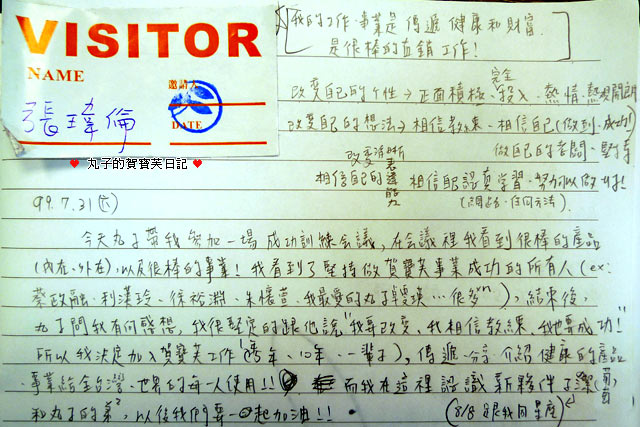 VISITOR
NAME
邀請人
DATE
張瑋倫
♥ 丸子的賀寶芙日記 ♥
我的工作、事業是傳遞健康和財富.
是很棒的直銷工作!
完全
改變自己的个性→正面積極、投入、熱情、熱
改變自己的想法→相信教練、相信自己(做到、成功!)
做自己的
改變
表達能力
相信自己的 相信自己認真學習、努力可以做
99.7.31(六)
今天丸子帶我參加一場成功訓練會議,在會議裡我看到很棒的產品
(內在、外在),以及很棒的事業!我看到了堅持做賀寶芙事業成功的所有人(ex:
蔡政融、利漢玲、徐裕淵、朱懷萱、我最愛的丸子 …很多xn),結束後,
丸子問我有何感想,我很堅定的跟他說"我要改變,我相信教練,我也要成功!"
所以我決定加入賀寶芙工作 年、10年、一輩子),傳遞、分享、介紹健康的產品
、事業給全台灣、世界的每一人使用!! 而我在這裡認識新夥伴
和丸子的弟²,以後我們要一起加油!!
(8/8 跟我同星座)